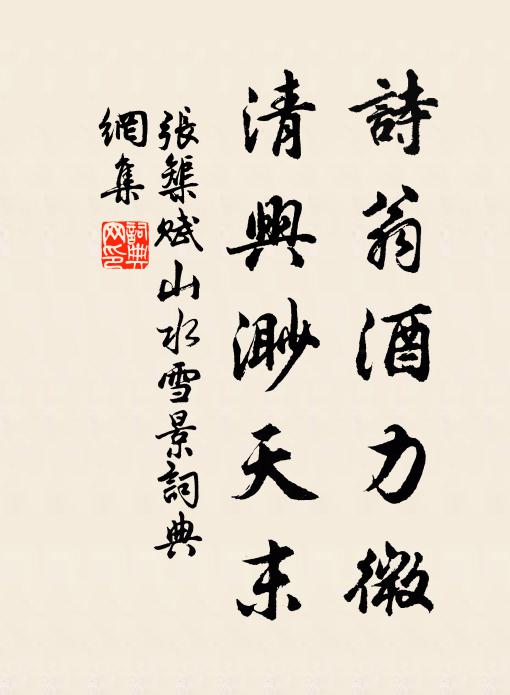 詩翁酒力微
清興渺天末
張榘賦山水雪景詞典
網集
詞典
网印